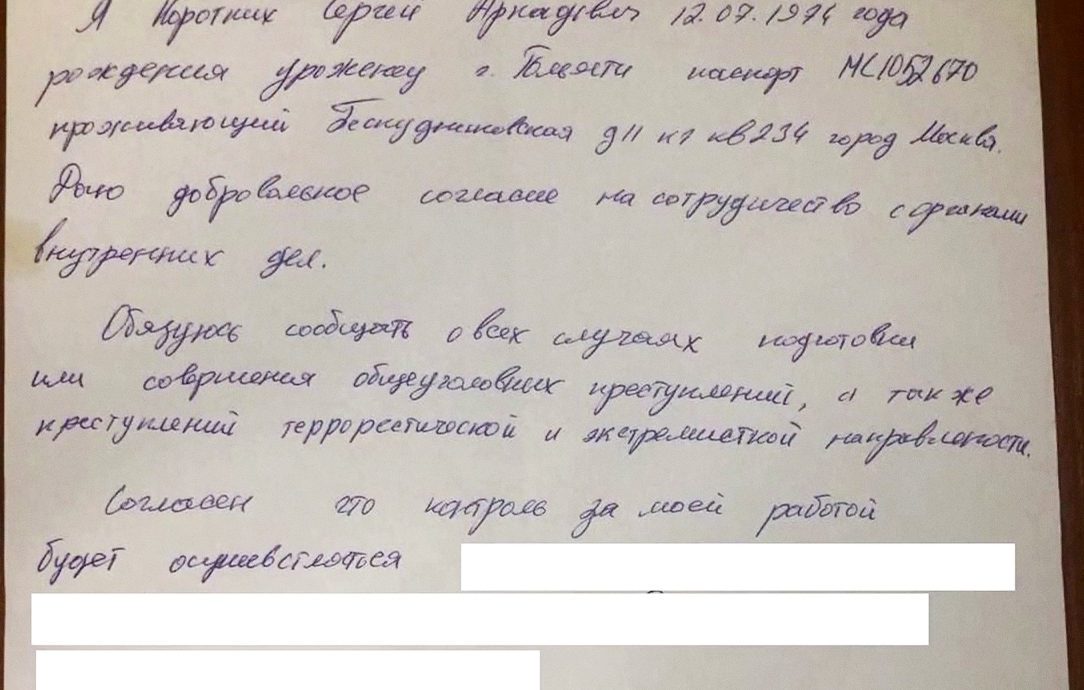 Я Коротких Сергей Аркадьевич 12.07.1974 года
рождения уроженец г. Тольятти паспорт МС1052670
проживающий Бескудниковская д11 к1 кв234 город Москва.
Даю добровольное согласие на сотрудичество с органами
внутренних дел.
Обязуюсь сообщать о всех случаях подготовки
или совершения общеуголовных преступлений, а так же
преступлений террорестической и экстремисткой направлености.
Согласен что контроль за моей работой
будет осушевстляться